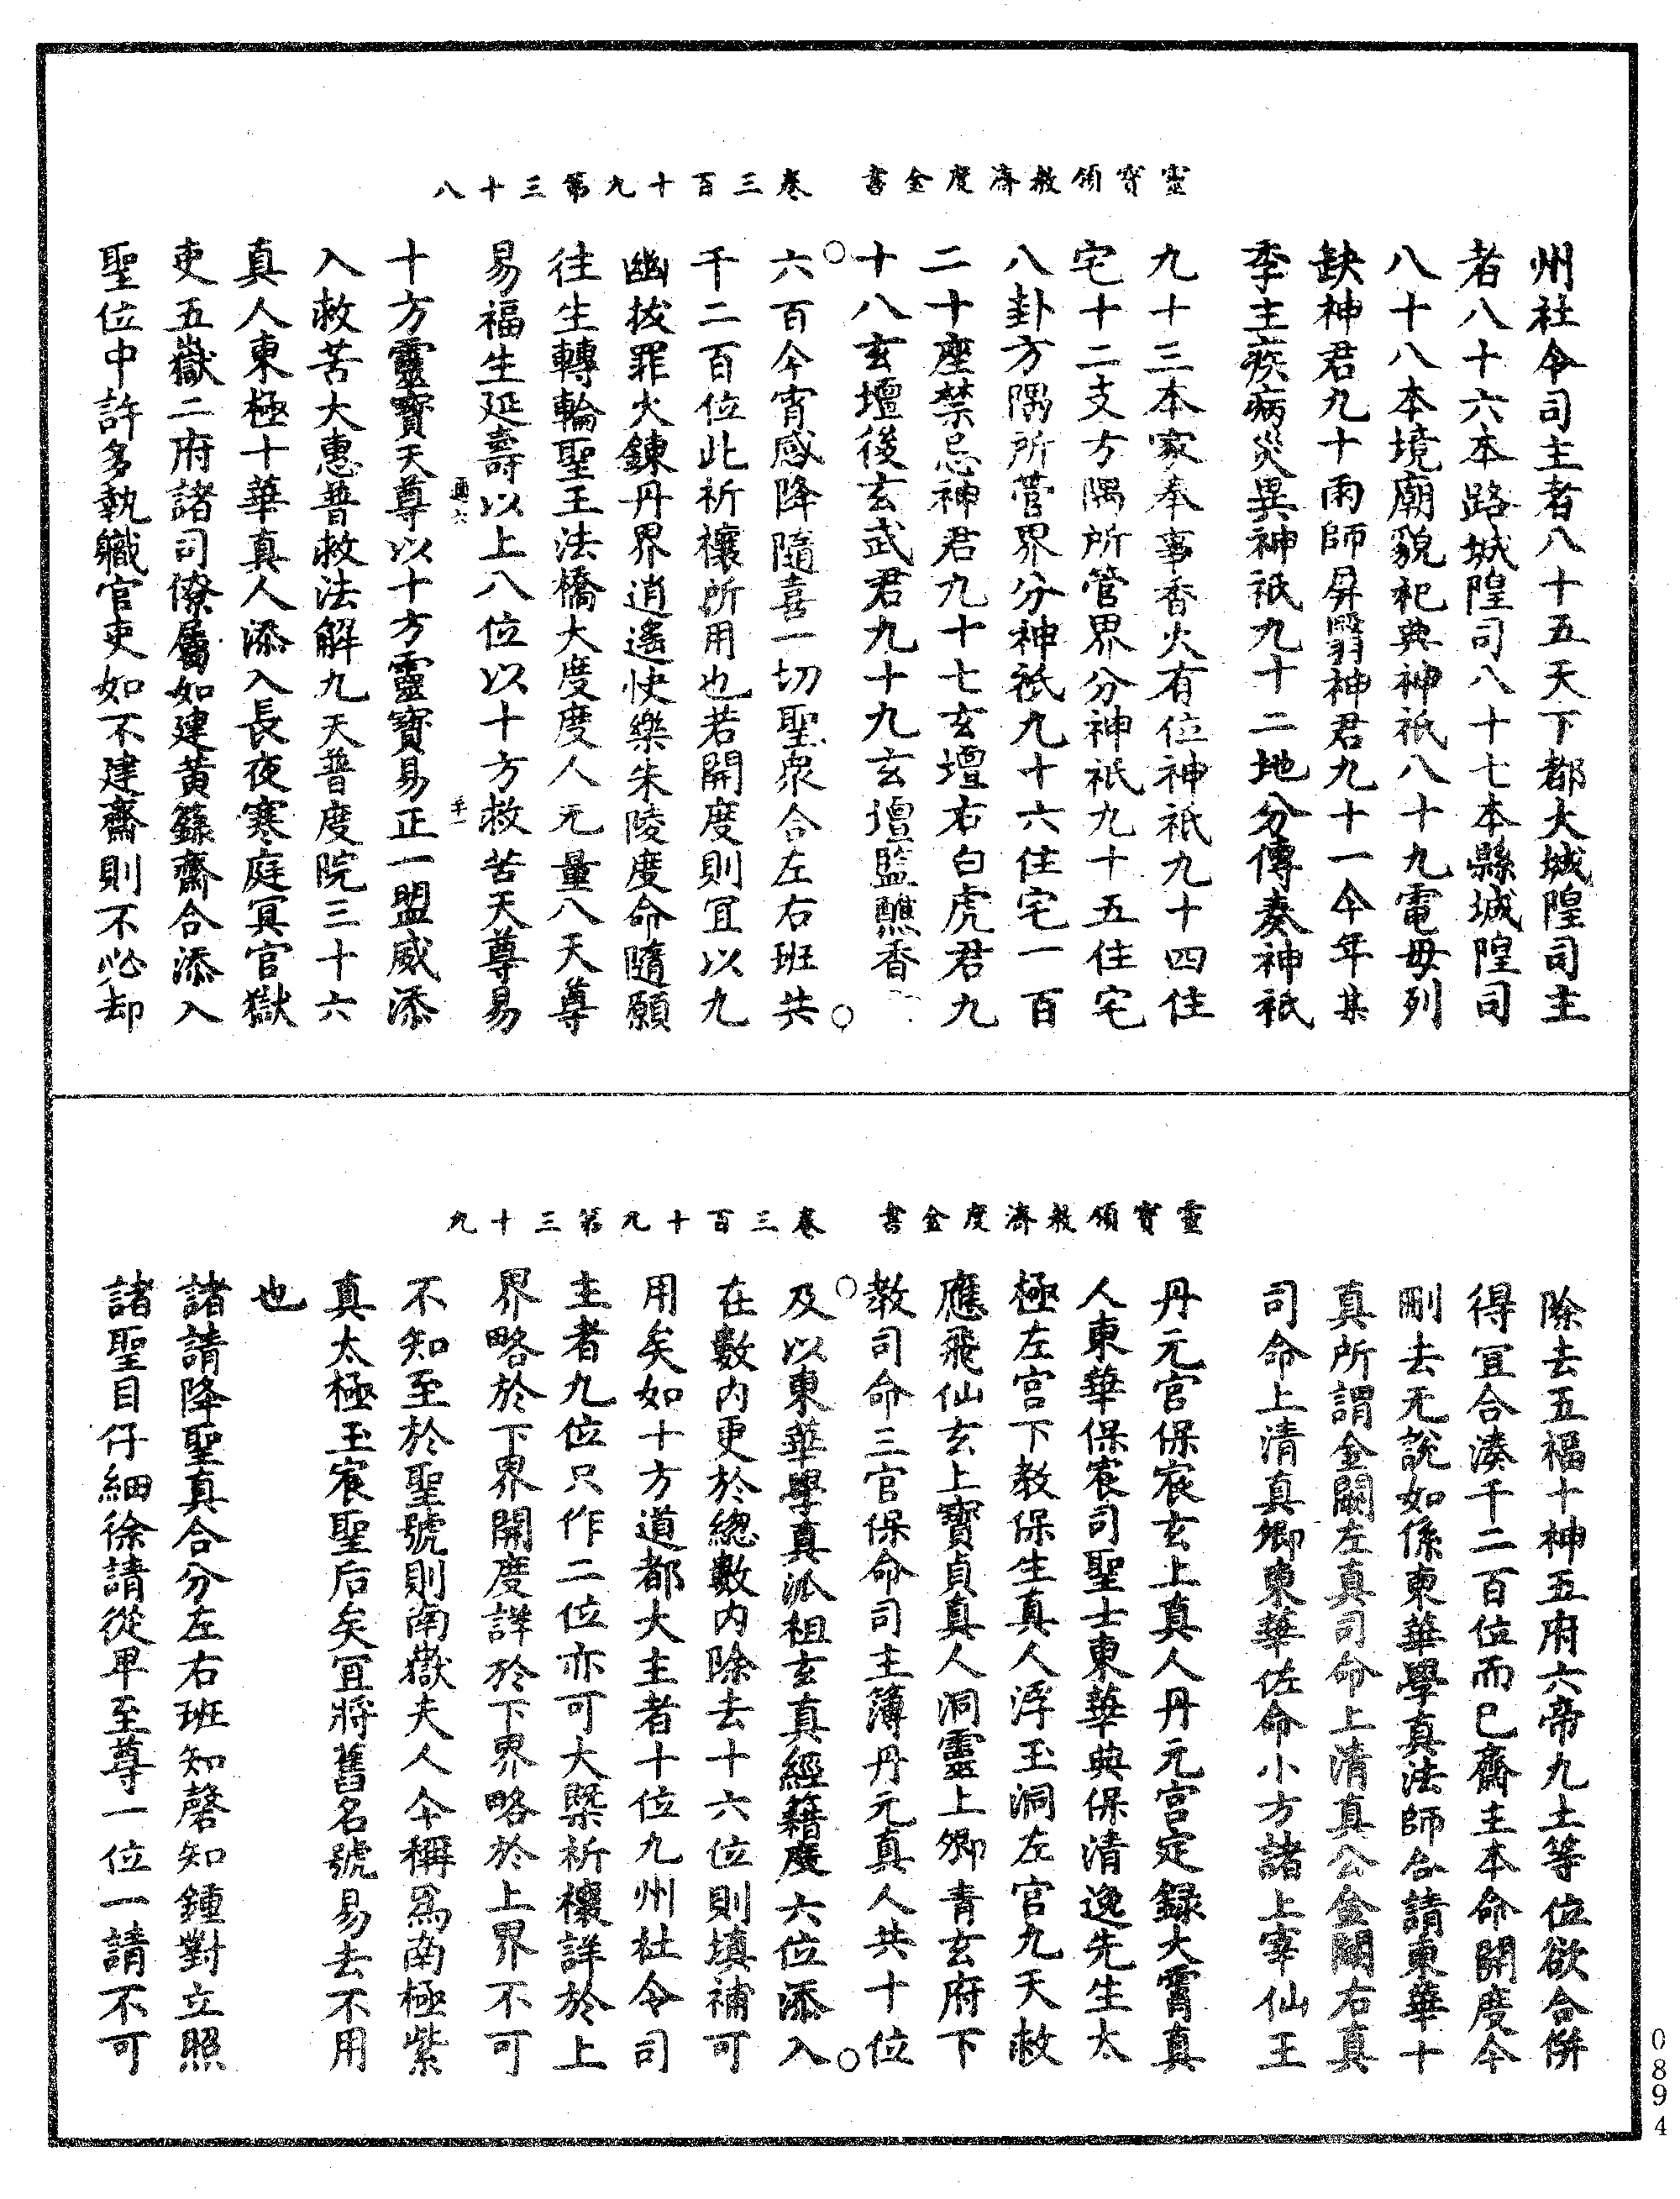 靈寶領教濟度金書　卷三百十九第三十八
州社令司主者八十五天下都大城隍司主
者八十六本路城隍司八十七本縣城隍司
八十八本境廟貌祀典神祇八十九電母列
缺神君九十雨師屏翳神君九十一今年某
季主疾病災異神祇九十二地分傳奏神祇
九十三本家奉事香火有位神祇九十四住
宅十二支方隅所管界分神祇九十五住宅
八卦方隅所管界分神祇九十六住宅一百
二十座禁忌神君九十七玄壇右白虎君九
十八玄壇後玄武君九十九玄壇監醮香一
六百今宵感降隨喜一切聖衆合左右班共
千二百位此祈禳所用也若開度則冝以九
幽拔罪火鍊丹界逍遙快樂朱陵度命隨願
往生轉輪聖王法橋大度度人无量八天尊
易福生延壽以上八位以十方救苦天尊易
通六　　　　　　　　
十方靈寶天尊以十方靈寶易正一盟威添
入救苦大惠普救法解九天普度院三十六
真人東極十華真人添入長夜寒庭冥官獄
吏五嶽二府諸司僚屬如建黃籙齋合添入
聖位中許多執職官吏如不建齋則不必却
靈寶領教濟度金書　卷三百十九第三十九
除去五福十神五府六帝九土等位欲合併
得冝合湊千二百位而已齋主本命開度今
刪去无說如係東華學真法師合請東華十
真所謂金闕左真司命上清真公金闕右真
司命上清真卿東華佐命小方諸上宰仙王
丹元官保宸玄上真人丹元宫定錄大霄真
人東華保宸司聖士東華典保清逸先生太
極左宫下教保生真人浮玉洞左官九天赦
應飛仙玄上寶貞真人洞靈上卿青玄府下
教司命三官保命司主簿丹元真人共十位
及以東華學真派祖玄真經籍度六位添入
在數內更於總數內除去十六位則填補可
用矣如十方道都大主者十位九州社令司
主者九位只作二位亦可大槩祈禳詳於上
界略於下界開度詳於下界略於上界不可
不知至於聖號則南嶽夫人今稱爲南極紫
真太極玉宸聖后矣冝將舊名號易去不用
也
諸請降聖真合分左右班知磬知鍾對立照
諸聖目仔細徐請從卑至尊一位一請不可
0894